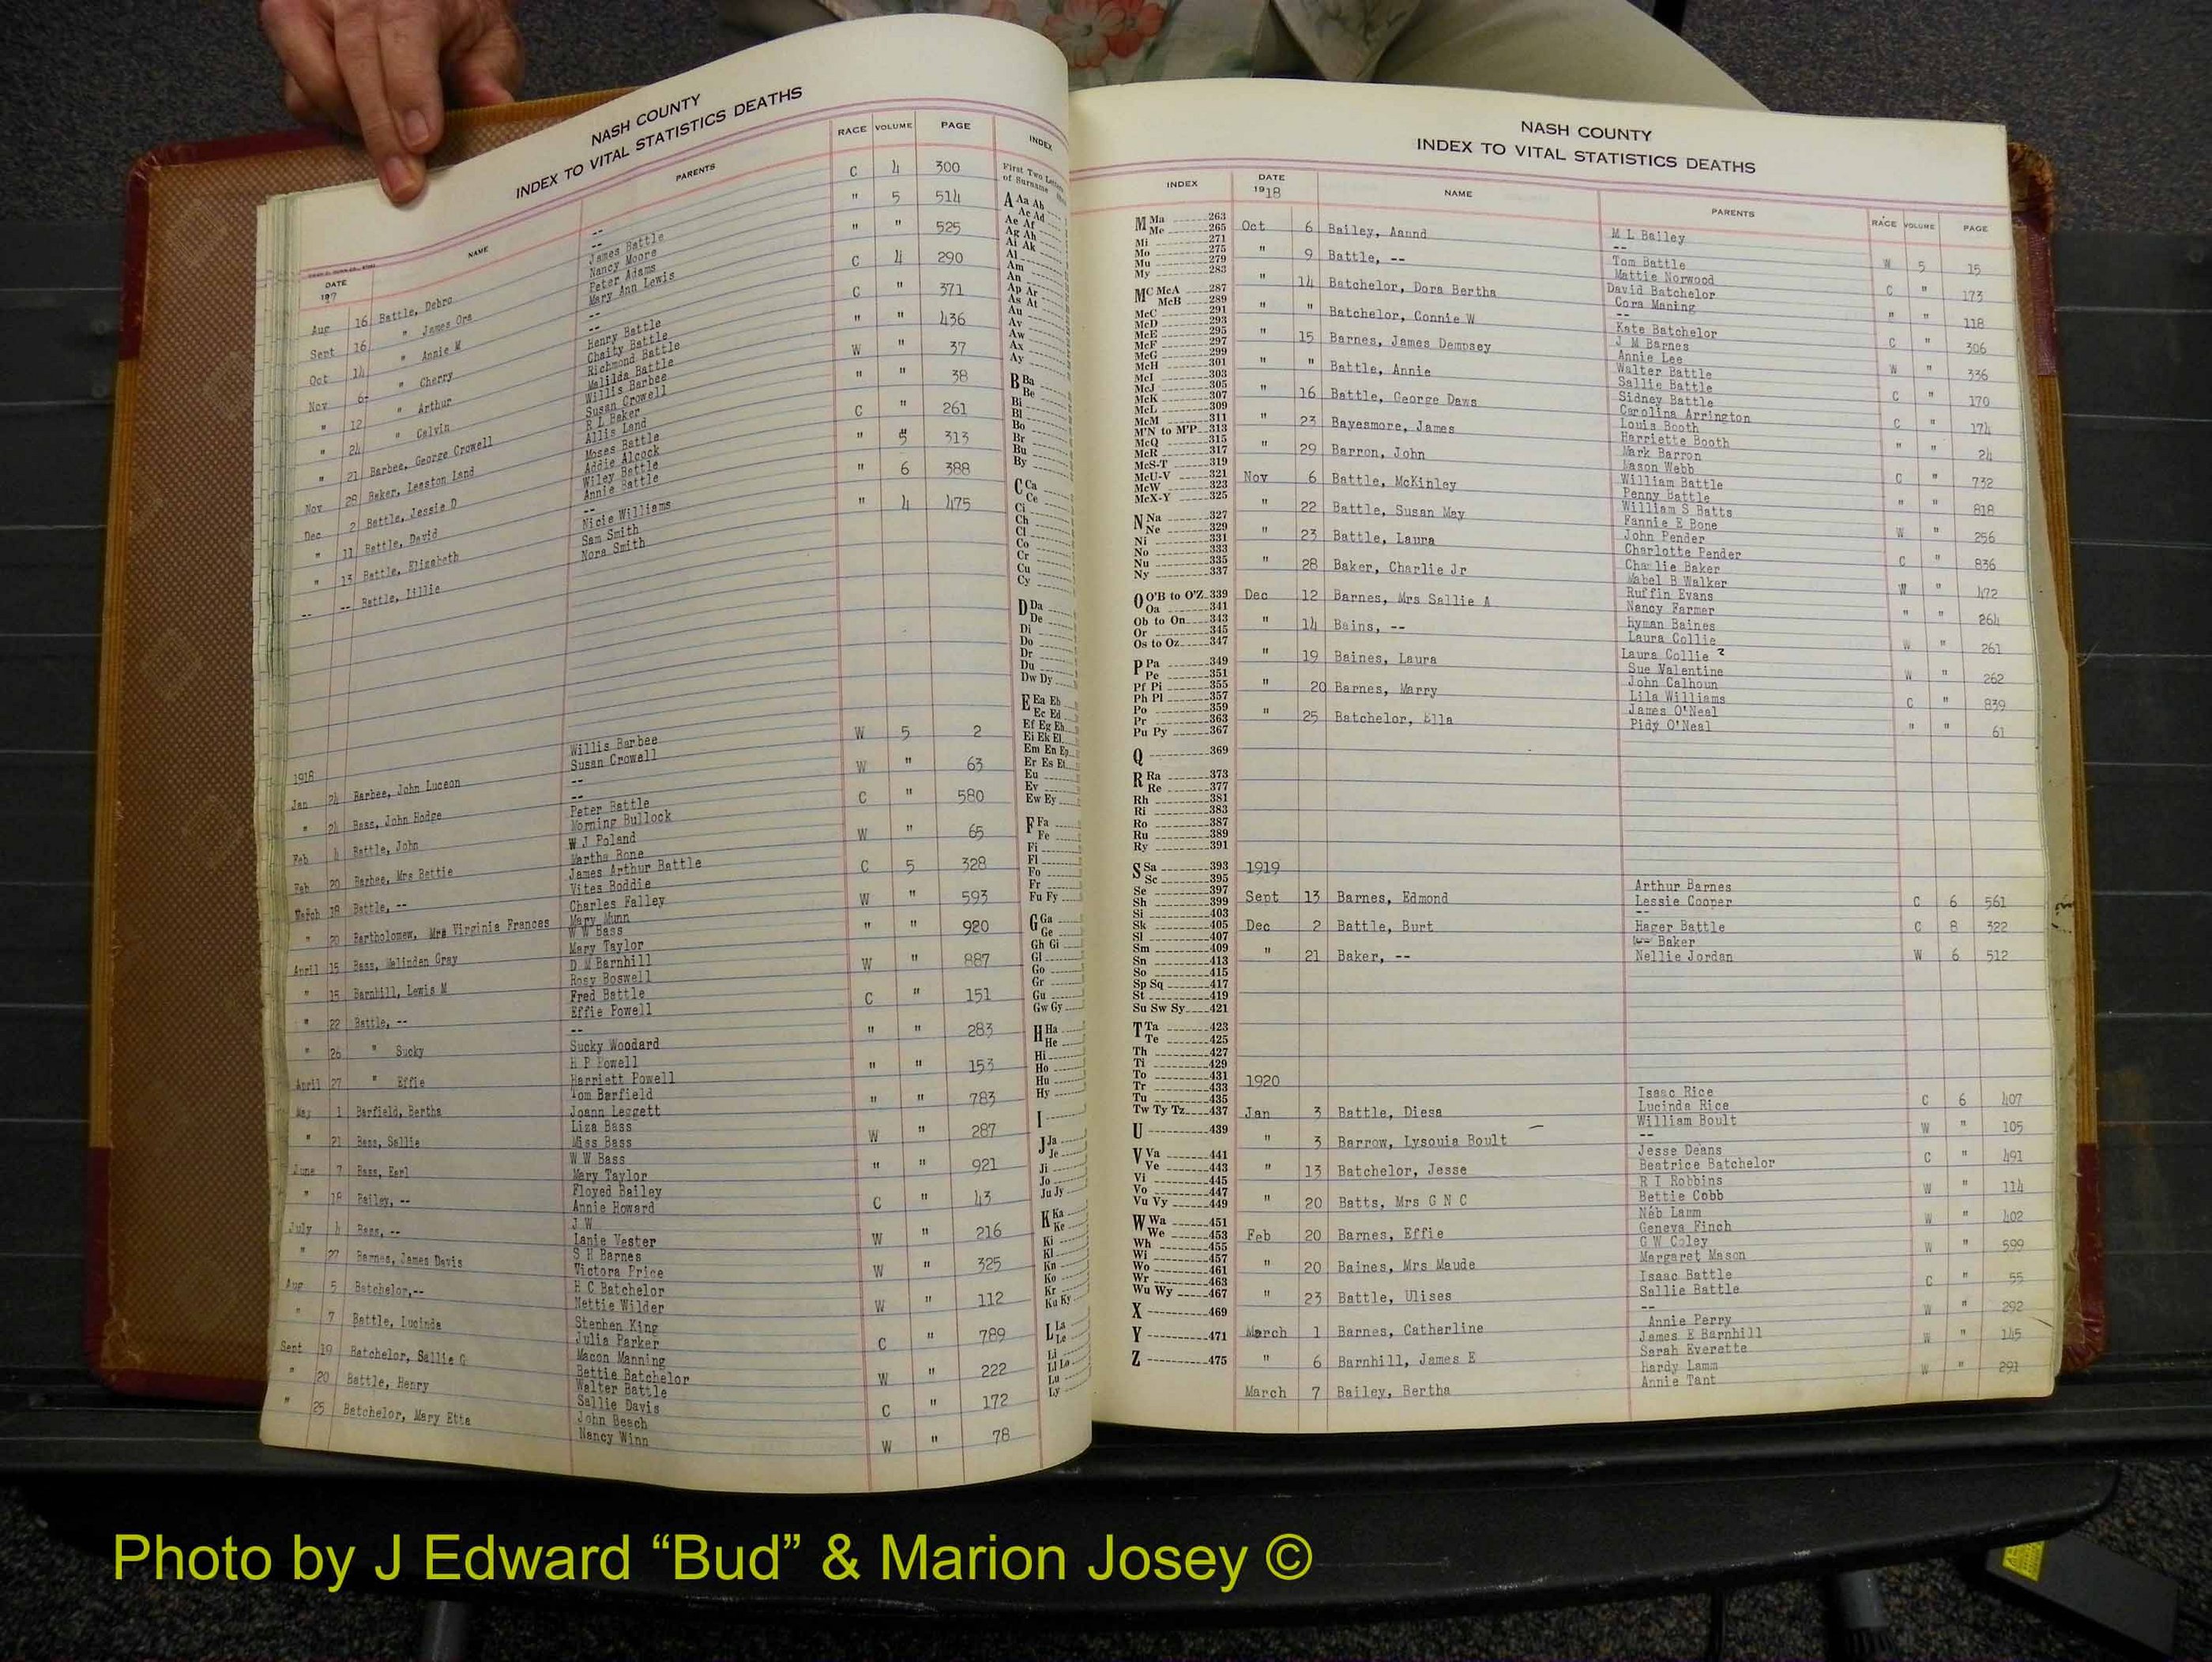 NASH COUNTY
INDEX TO VITAL STATISTICS DEATHS
DATE NAME PARENTS RACE VOLUME PAGE
1917
Aug 16 Battle, Debro -- C 4 300
--
Sept 16 " James Ora James Battle " 5 514
Nancy Moore
Oct 14 " Annie M Peter Adams " " 525
Mary Ann Lewis
Nov 6 " Cherry -- C 4 290
--
" 12 " Arthur Henry Battle C " 371
Chaity Battle
" 24 " Calvin Richmond Battle " " 436
Malilda Battle
" 21 Barbee, George Crowell Willis Barbee W " 37
Susan Crowell
Nov 28 Baker, Lesston Land R L Baker " " 38
Allis Land
Dec 2 Battle, Jessie D Moses Battle C " 261
Addie Alcock
" 11 Battle, David Wiley Battle " 5 313
Annie Battle
" 13 Battle, Elizabeth -- " 6 388
Nicie Williams
-- -- Battle, Lillie Sam Smith " 4 475
Nora Smith
1918
Jan 24 Barbee, John Luceon Willis Barbee W 5 2
Susan Crowell
" 24 Bass, John Hodge -- W " 63
--
Feb 4 Battle, John Peter Battle C " 580
Morning Bullock
Feb 20 Barbee, Mrs Bettie W J Poland W " 65
Martha Bone
March 18 Battle, -- James Arthur Battle C 5 328
Vites Boddie
" 20 Bartholomew, Mrs Virginia Frances Charles Falley W " 593
Mary Munn
April 15 Bass, Melinden Gray W W Bass " " 920
Mary Taylor
" 15 Barnhill, Lewis M D M Barnhill W " 887
Rosy Boswell
" 22 Battle, -- Fred Battle C " 151
Effie Powell
" 26 " Sucky -- " " 283
Sucky Woodard
April 27 " Effie H P Powell " " 153
Harriett Powell
May 1 Barfield, Bertha Tom Barfield " " 783
Joann Leggett
" 21 Bass, Sallie Liza Bass W " 287
Miss Bass
June 7 Bass, Earl W W Bass " " 921
Mary Taylor
" 18 Bailey, -- Floyed Bailey C " 43
Annie Howard
July 4 Bass, -- J W W " 216
Lanie Vester
" 27 Barnes, James Davis S H Barnes W " 325
Victora Price
Aug 5 Batchelor,-- H C Batchelor W " 112
Nettie Wilder
" 7 Battle, Lucinda Stephen King C " 789
Julia Parker
Sept 19 Batchelor, Sallie G Macon Manning W " 222
Bettie Batchelor
" 20 Battle, Henry Walter Battle C " 172
Sallie Davis
" 25 Batchelor, Mary Etta John Beach W " 78
Nancy Winn
INDEX
First Two Letters
of Surname
A Aa Ab
Ac Ad
Ae Af
Ag Ah
Ai Ak
Al
Am
An
Ap Ar
As At
Au
Av
Aw
Ax
Ay
B Ba
Be
Bi
Bl
Bo
Br
Bu
By
C Ca
Ce
Ci
Ch
Cl
Co
Cr
Cu
Cy
D Da
De
Di
Do
Dr
Du
Dw Dy
E Ea Eb
Ec Ed
Ef Eg Eh
Ei Ek El
Em En Ep
Er Es Et
Eu
Ev
Ew Ey
F Fa
Fe
Fi
Fl
Fo
Fr
Fu Fy
G Ga
Ge
Gh Gi
Gl
Go
Gr
Gu
Gw Gy
H Ha
He
Hi
Ho
Hu
Hy
I
J Ja
Je
Ji
Jo
Ju Jy
K Ka
Ke
Ki
Kl
Kn
Ko
Kr
Ku Ky
L La
Le
Li
Ll Lo
Lu
Ly
NASH COUNTY
INDEX TO VITAL STATISTICS DEATHS
INDEX
M Ma 263
Me 265
Mi 271
Mo 275
Mu 279
My 283
Mc McA 287
McB 289
McC 291
McD 293
McE 295
McF 297
McG 299
McH 301
McI 303
McJ 305
McK 307
McL 309
McM 311
M'N to M'P 313
McQ 315
McR 317
McS-T 319
McU-V 321
McW 323
McX-Y 325
N Na 327
Ne 329
Ni 331
No 333
Nu 335
Ny 337
O O'B to O'Z 339
Oa 341
Ob to On 343
Or 345
Os to Oz 347
P Pa 349
Pe 351
Pf Pi 355
Ph Pl 357
Po 359
Pr 363
Pu Py 367
Q 369
R Ra 373
Re 377
Rh 381
Ri 383
Ro 387
Ru 389
Ry 391
S Sa 393
Sc 395
Se 397
Sh 399
Si 403
Sk 405
Sl 407
Sm 409
Sn 413
So 415
Sp Sq 417
St 419
Su Sw Sy 421
T Ta 423
Te 425
Th 427
Ti 429
To 431
Tr 433
Tu 435
Tw Ty Tz 437
U 439
V Va 441
Ve 443
Vi 445
Vo 447
Vu Vy 449
W Wa 451
We 453
Wh 455
Wi 457
Wo 461
Wr 463
Wu Wy 467
X 469
Y 471
Z 475
DATE NAME PARENTS RACE VOLUME PAGE
1918
Oct 6 Bailey, Aaund M L Bailey W 5 15
--
" 9 Battle, -- Tom Battle C " 173
Mattie Norwood
" 14 Batchelor, Dora Bertha David Batchelor " " 118
Cora Maning
" " Batchelor, Connie W -- C " 306
Kate Batchelor
" 15 Barnes, James Dempsey J M Barnes W " 336
Annie Lee
" " Battle, Annie Walter Battle C " 170
Sallie Battle
" 16 Battle, George Daws Sidney Battle C " 174
Carolina Arrington
" 23 Bayesmore, James Louis Booth " " 24
Harriette Booth
" 29 Barron, John Mark Barron C " 732
Mason Webb
Nov 6 Battle, McKinley William Battle " " 818
Penny Battle
" 22 Battle, Susan May William S Batts W " 256
Fannie E Bone
" 23 Battle, Laura John Pender C " 836
Charlotte Pender
" 28 Baker, Charlie Jr Charlie Baker W " 472
Mabel B Walker
Dec 12 Barnes, Mrs Sallie A Ruffin Evans " " 264
Nancy Farmer
" 14 Bains, -- Hyman Baines W " 261
Laura Collie
" 19 Baines, Laura Laura Collie ? W " 262
Sue Valentine
" 20 Barnes, Marry John Calhoun C " 839
Lila Williams
" 25 Batchelor, Ella James O'Neal " " 61
Pidy O'Neal
1919
Sept 13 Barnes, Edmond Arthur Barnes C 6 561
Lessie Cooper
--
Dec 2 Battle, Burt Hager Battle C 8 322
-- Baker
" 21 Baker, -- Nellie Jordan W 6 512
1920
Isaac Rice
Jan 3 Battle, Diesa Lucinda Rice C 6 407
William Boult
" 3 Barrow, Lysouia Boult -- W " 105
Jesse Deans
" 13 Batchelor, Jesse Beatrice Batchelor C " 491
R I Robbins
" 20 Batts, Mrs G N C Bettie Cobb W " 114
Neb Lamm
Feb 20 Barnes, Effie Geneva Finch W " 402
G W Coley
" 20 Baines, Mrs Maude Margaret Mason W " 599
Isaac Battle
" 23 Battle, Ulises Sallie Battle C " 55
--
March 1 Barnes, Catherline Annie Perry W " 292
James E Barnhill
" 6 Barnhill, James E Sarah Everette W " 145
Hardy Lamm
March 7 Bailey, Bertha Annie Tant W " 291
Photo by J Edward “Bud” & Marion Josey ©